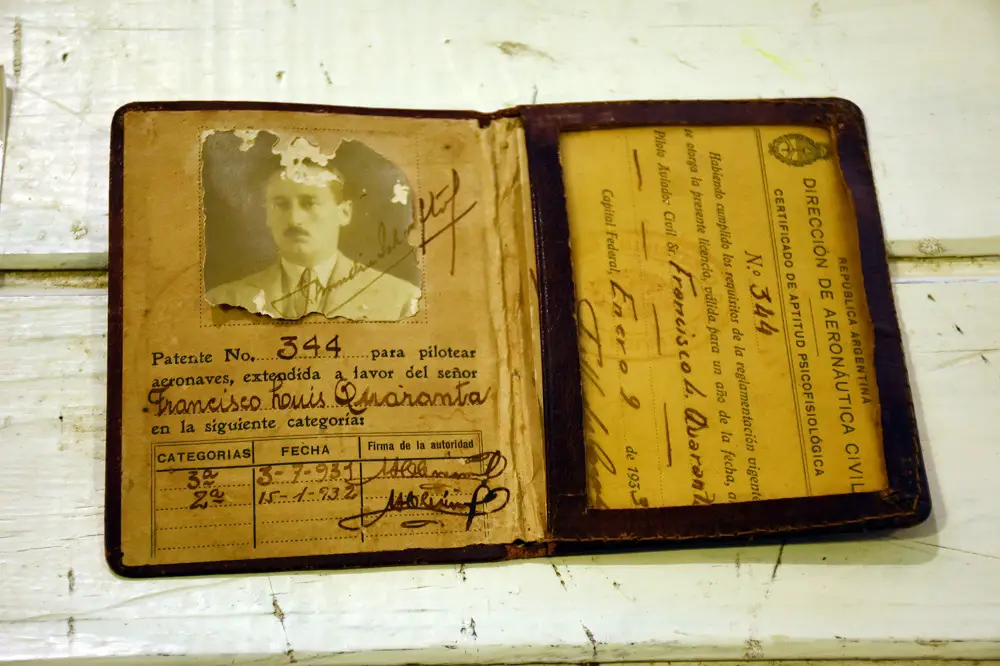 Patente No. 344 para pilotear
aeronaves, extendida a favor del señor
Francisco Luis Quaranta
en la siguiente categoría:
CATEGORIAS FECHA Firma de la autoridad
3ª 3-7-931
2ª 15-1-932
REPUBLICA ARGENTINA
DIRECCIÓN DE AERONÁUTICA CIVIL
CERTIFICADO DE APTITUD PSICOFISIOLÓGICA
N.º 344
Habiendo cumplido los requisitos de la reglamentación vigente
se otorga la presente licencia, válida para un año de la fecha, a
Piloto Aviador: Civil Sr. Francisco L. Quarant
Capital Federal, Enero 9 de 1933